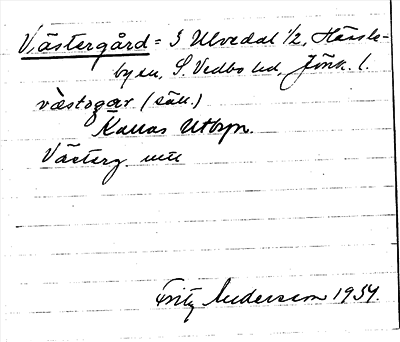 Västergård = 3 Ulvedal 1/2, Hässle-
byn, S. Vedbo hd, Jönk. l.
västogar (säll.)
Kallas Utbyn.
Västerg.
Fritz Andersson 1934.